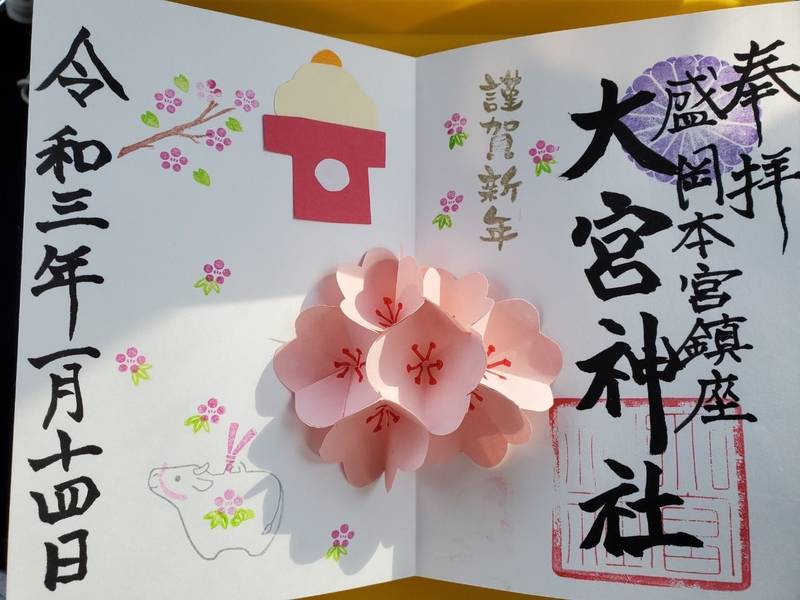 奉拝
盛岡本宮鎮座
大宮神社
謹賀新年
令和三年一月十四日